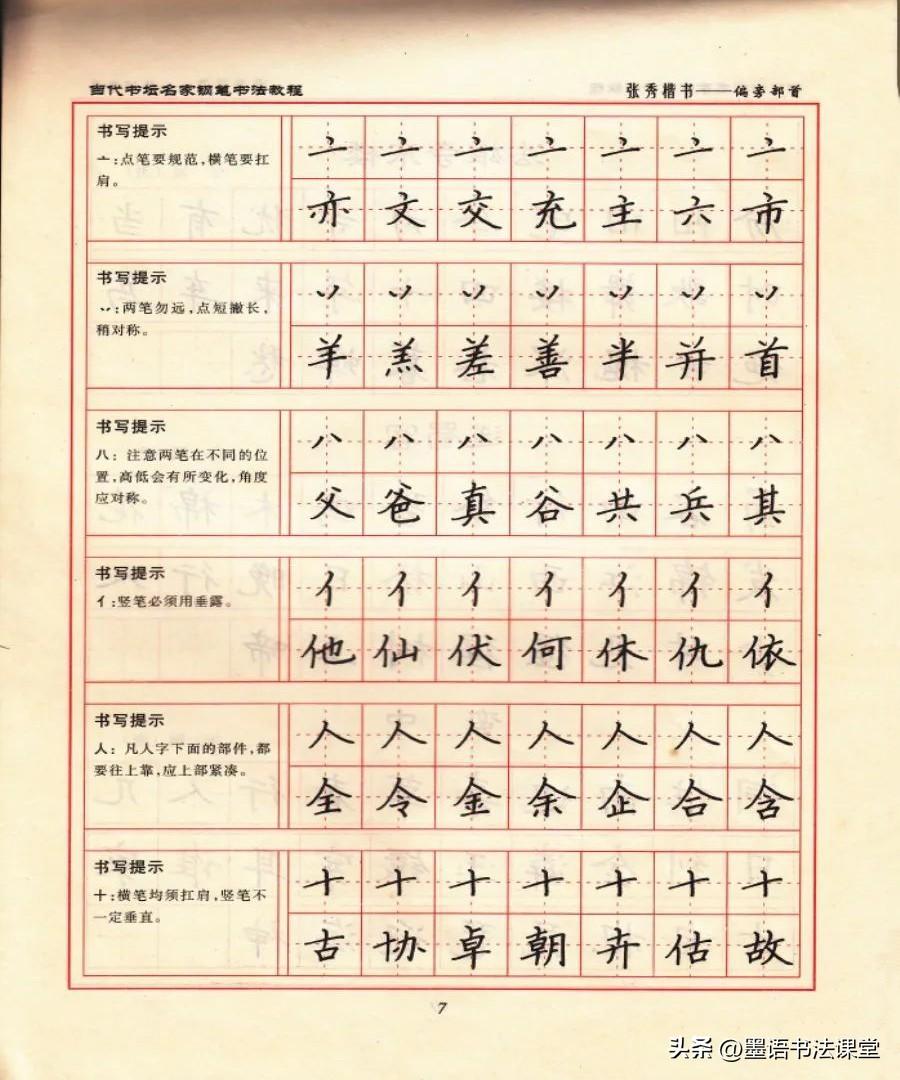 当代书坛名家钢笔书法教程
张秀楷书——偏旁部首
书写提示
亠:点笔要规范,横笔要扛
肩。
亠 亠 亠 亠 亠 亠 亠
亦 文 交 充 主 六 市
书写提示
丷:两笔勿远,点短撇长,
稍对称。
丷 丷 丷 丷 丷 丷 丷
羊 羔 差 善 半 并 首
书写提示
八: 注意两笔在不同的位
置,高低会有所变化,角度
应对称。
八 八 八 八 八 八 八
父 爸 真 谷 共 兵 其
书写提示
亻:竖笔必须用垂露。
亻 亻 亻 亻 亻 亻 亻
他 仙 伏 何 休 仇 依
书写提示
人: 凡人字下面的部件,都
要往上靠,应上部紧凑。
人 人 人 人 人 人 人
全 令 金 余 企 合 含
书写提示
十:横笔均须扛肩,竖笔不
一定垂直。
十 十 十 十 十 十 十
古 协 卓 朝 卉 估 故
7
头条 @墨语书法课堂